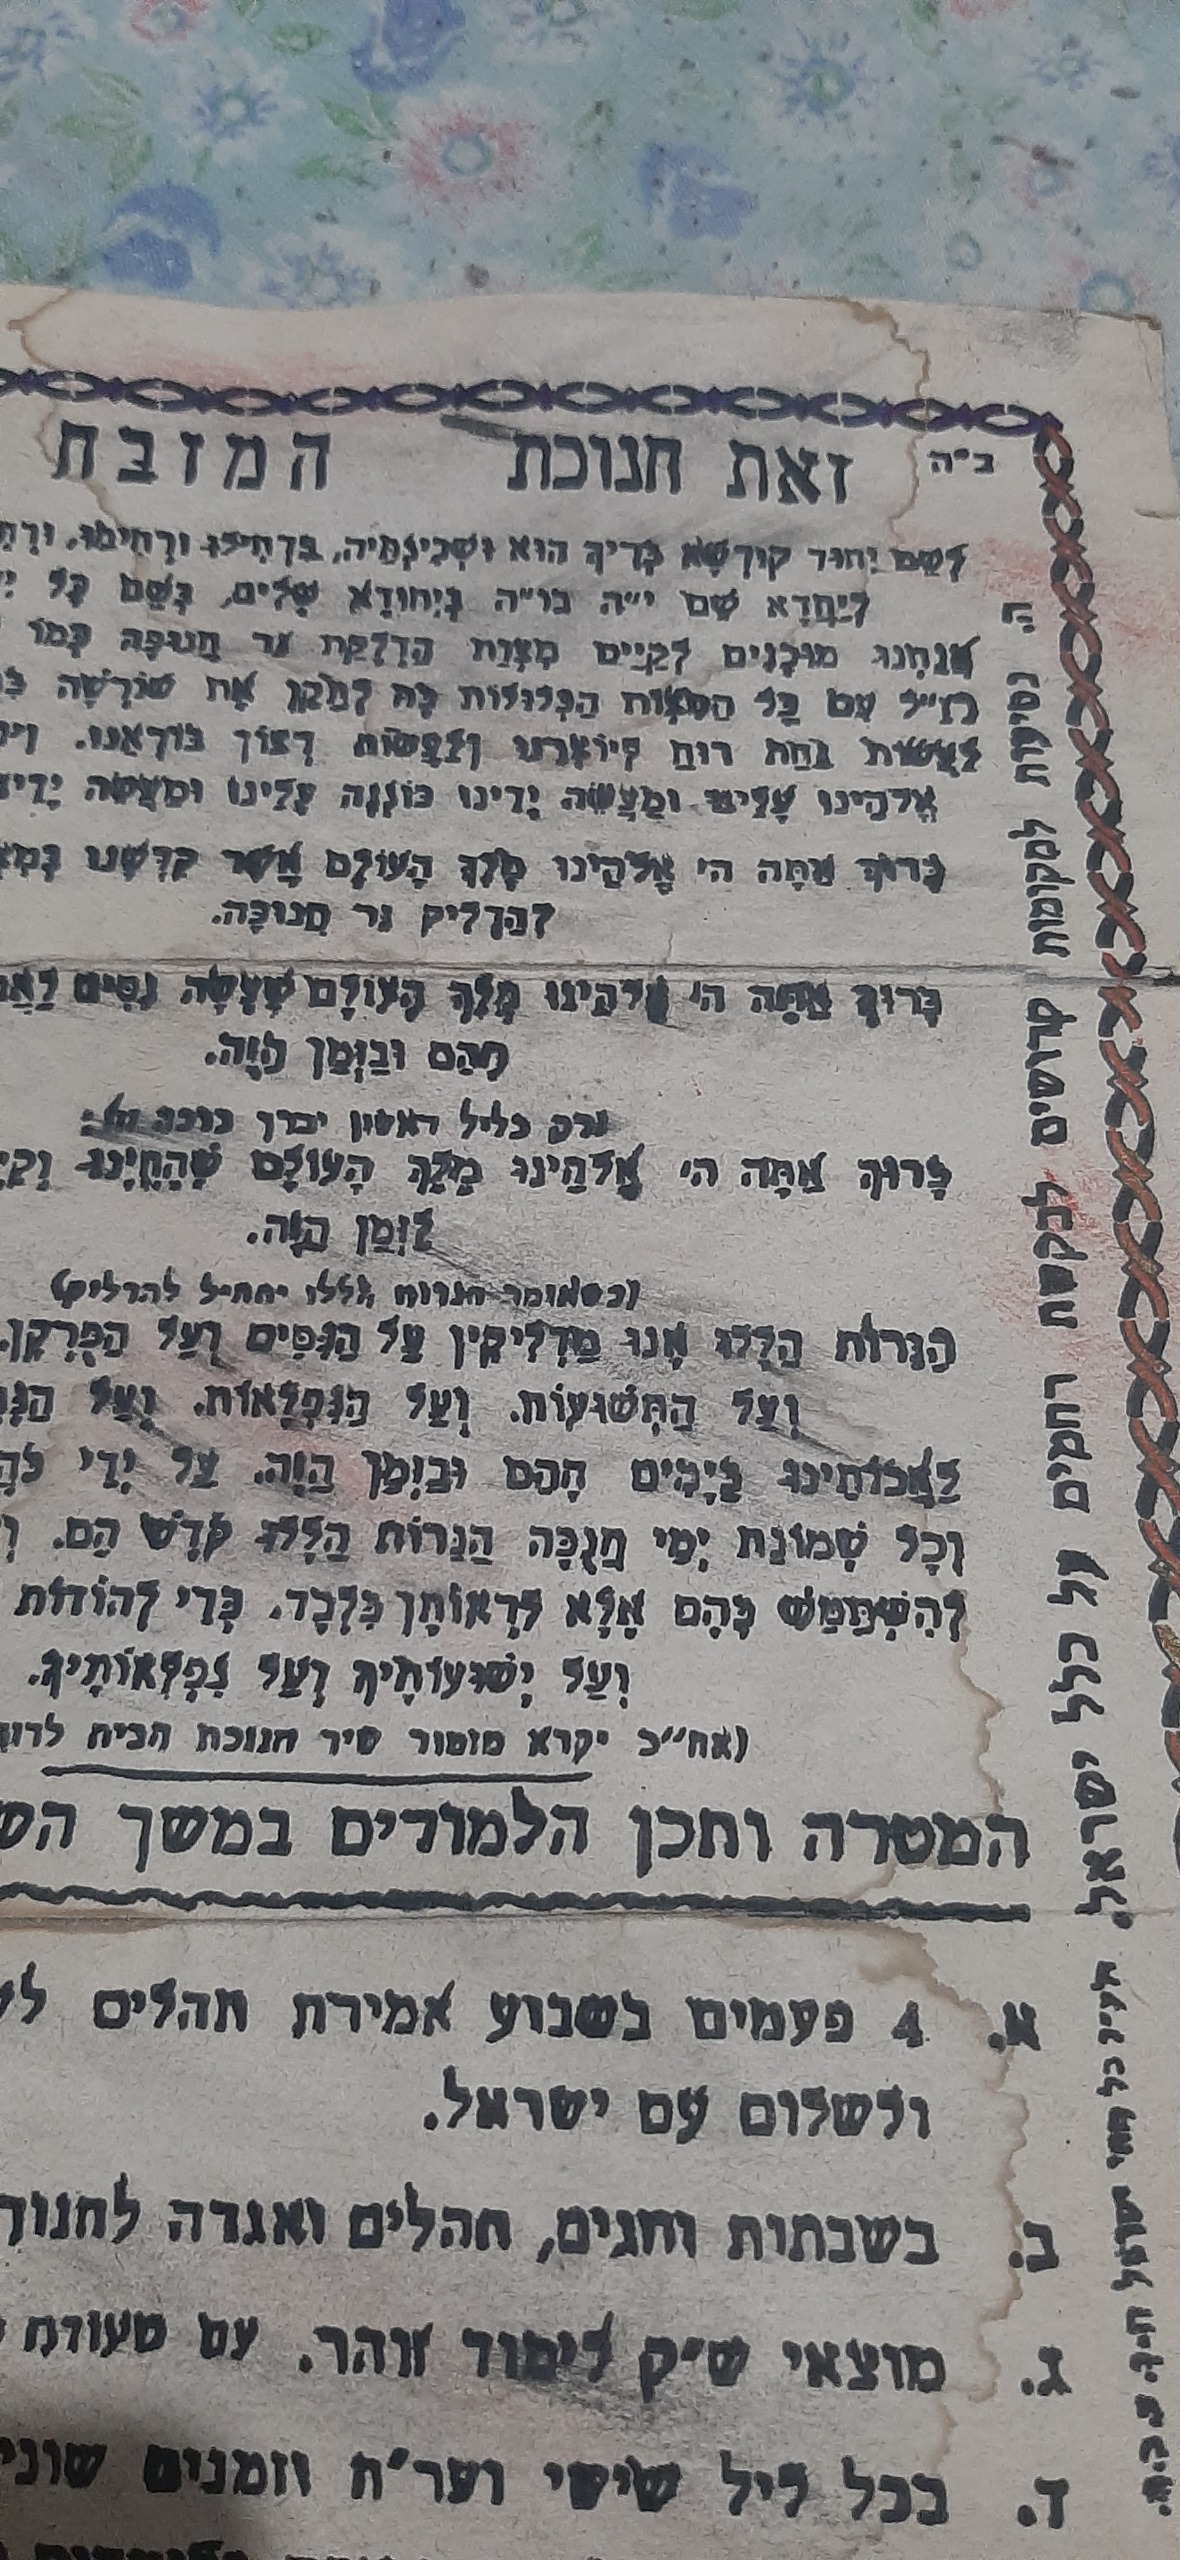 ב״ה
זאת חנוכת המזבח
לְשֵׁם יִחוּד קוּדְשָׁא בְּרִיךְ הוּא וּשְׁכִינְתֵּיהּ, בִּדְחִילוּ וּרְחִימוּ,
לְיַחֲדָא שֵׁם י״ה בו״ה בְּיִחוּדָא שְׁלִים, בְּשֵׁם כָּל
אֲנַחְנוּ מוּכָנִים לְקַיֵּים מִצְוַת הַדְלָקַת נֵר חֲנוּכָּה כְּמוֹ
רז״ל עִם כָּל הַמִּצְווֹת הַכְּלוּלוֹת בָּהּ לְתַקֵּן אֶת שׁוֹרְשָׁהּ
לַעֲשׂוֹת נַחַת רוּחַ לְיוֹצְרֵנוּ וְלַעֲשׂוֹת רָצוֹן בּוֹרְאֵנוּ.
אֱלֹהֵינוּ עָלֵינוּ וּמַעֲשֵׂה יָדֵינוּ כּוֹנְנָה עָלֵינוּ וּמַעֲשֵׂה
בָּרוּךְ אַתָּה ה׳ אֱלֹהֵינוּ מֶלֶךְ הָעוֹלָם אֲשֶׁר קִדְּשָׁנוּ
לְהַדְלִיק נֵר חֲנוּכָּה.
בָּרוּךְ אַתָּה ה׳ אֱלֹהֵינוּ מֶלֶךְ הָעוֹלָם שֶׁעָשָׂה נִסִּים
הָהֵם וּבַזְּמַן הַזֶּה.
ורק בליל ראשון יברך ברכה זו:
בָּרוּךְ אַתָּה ה׳ אֱלֹהֵינוּ מֶלֶךְ הָעוֹלָם שֶׁהֶחֱיָנוּ
לַזְּמַן הַזֶּה.
(כשאומר הנרות הללו יתחיל להדליק)
הַנֵּרוֹת הַלָּלוּ אָנוּ מַדְלִיקִין עַל הַנִּסִּים וְעַל הַפֻּרְקָן.
וְעַל הַתְּשׁוּעוֹת. וְעַל הַנִּפְלָאוֹת. וְעַל
לַאֲבוֹתֵינוּ בַּיָּמִים הָהֵם וּבַזְּמַן הַזֶּה. עַל יְדֵי
וְכָל שְׁמוֹנַת יְמֵי חֲנֻכָּה הַנֵּרוֹת הַלָּלוּ קֹדֶשׁ הֵם.
לְהִשְׁתַּמֵּשׁ בָּהֶם אֶלָּא לִרְאוֹתָן בִּלְבָד. כְּדֵי לְהוֹדוֹת
וְעַל יְשׁוּעוֹתֶיךָ וְעַל נִפְלְאוֹתֶיךָ.
(אח״כ יקרא מזמור שיר חנוכת הבית
המטרה ותכן הלמודים במשך
א. 4 פעמים בשבוע אמירת תהלים
ולשלום עם ישראל.
ב. בשבתות וחגים, תהלים ואגדה
ג. מוצאי ש״ק לימוד זוהר. עם סעודת
ד. בכל ליל שישי וער״ח וזמנים
ה. נסיעות למקומות קדושים לבקשת רחמים על כלל ישראל.